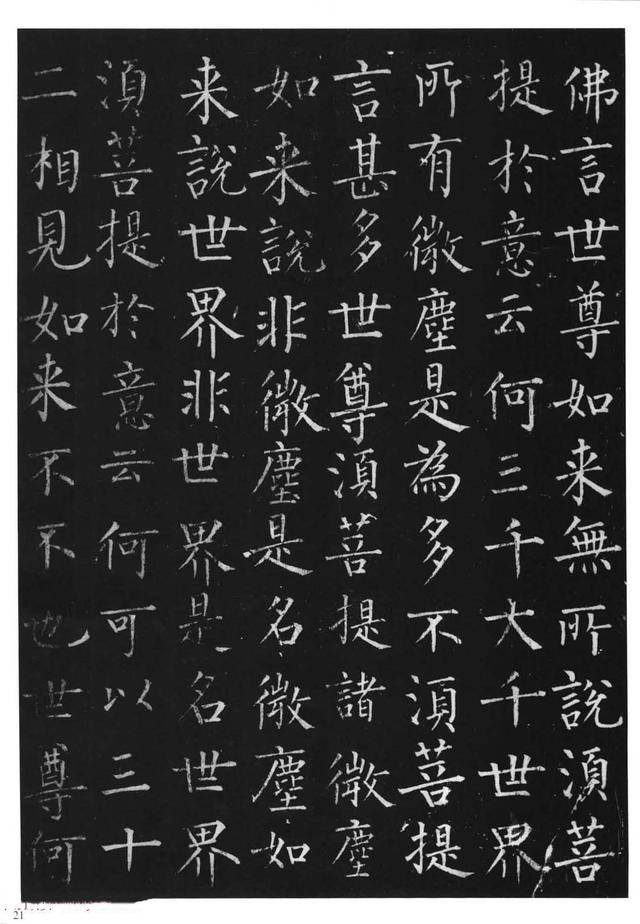 佛言世尊如来無所說湏菩
提於意云何三千大千世界
所有微塵是為多不湏菩提
言甚多世尊湏菩提諸微塵
如来說非微塵是名微塵如
来說世界非世界是名世界
湏菩提於意云何可以三十
二相見如来不不也世尊何
21